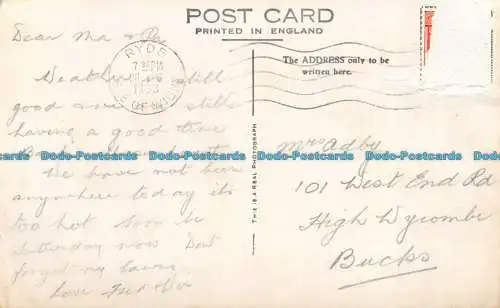 POST CARD
PRINTED IN ENGLAND
The ADDRESS only to be
written here.
RYDE
7 PM
1933
ISLE OF WIGHT
THIS IS A REAL PHOTOGRAPH
Dear Ma
Weather is still
good still
having a good time
We have not been
anywhere today its
too hot soon be
Saturday now Dont
forget my
Love Fred
Mrs Adby
101 West End Rd
High Wycombe
Bucks
Dodo-Postcards Dodo-Postcards Dodo-Postcards Dodo-Postcards Dodo-Postcards
Dodo-Postcards Dodo-Postcards Dodo-Postcards Dodo-Postcards Dodo-Postcards